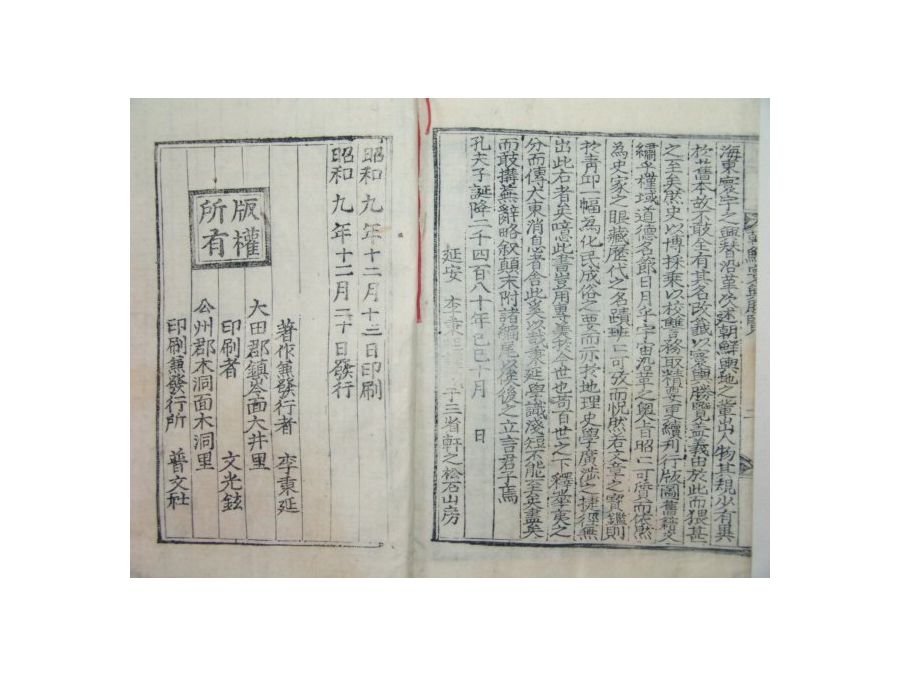 海東寰宇之興替沿革次述朝鮮輿地之彙出人物其規少有異
於舊本故不敢全有其名改籤以寰輿勝覽盖義由於此而猥甚
之至矣庶史以博採乘以校雙務取精要更續刋行版圖舊籍文
繡之權域道德名節日月乎宇宙沿革之奧旨昭昭可質而依然
為史家之眼藏歷代之名蹟班班可攷而怳然若文章之寶鑑則
於靑邱一幅為化民成俗之要而亦於地理史學廣涉之捷徑無
出此右者矣噫此書豈用專美於今世也苟百世之下釋華夷之
分而使大東消息者舍此奚以哉秉延學識淺短不能至善盡矣
而敢搆蕪辭略叙顚末附諸編尾以俟後之立言君子焉
孔夫子誕降二千四百八十年己巳十月 日
延安 李秉延 于三省軒之松石山房
昭和九年十二月十三日印刷
昭和九年十二月二十日發行
版權所有
著作兼發行者 李秉延
大田郡鎮岑面大井里
印刷者 文光鉉
公州郡木洞面木洞里
印刷兼發行所 普文社